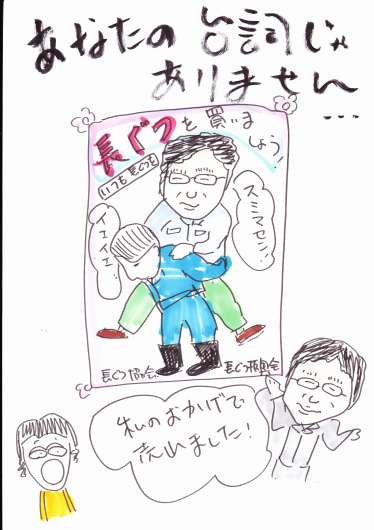 あなたの台詞じゃ
ありません
...
長ぐつを買いま
しょう!
いつも長ぐつを
スミマセン!
イエイエ
長ぐつ協会
長ぐつ振興会
私のおかげで
売れました!